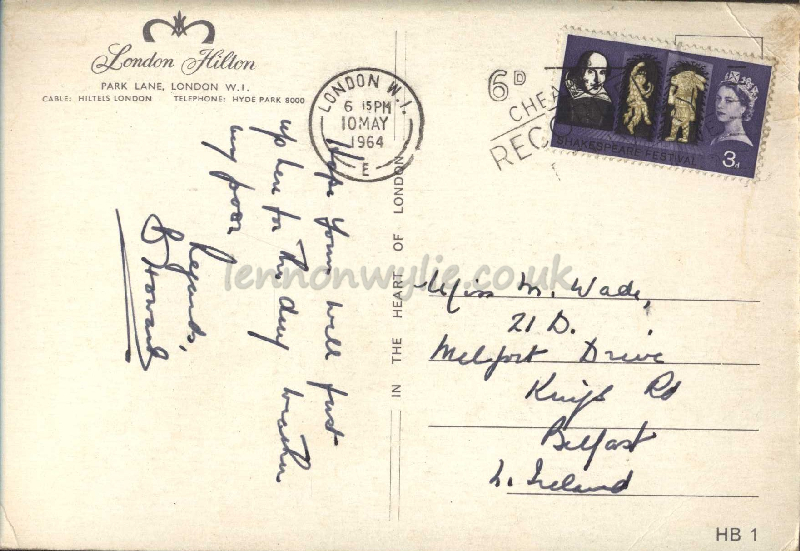 London Hilton
PARK LANE, LONDON W.I.
CABLE: HILTELS LONDON TELEPHONE: HYDE PARK 8000
LONDON W.1.
6 15PM
10 MAY
1964
E
6D
CHEA
RECO
SHAKESPEARE FESTIVAL
3d
Hope your well just
up here for the day weather
very poor
Regards,
B Howard
IN THE HEART OF LONDON
Miss M. Wade,
21 D.
Melfort Drive
Kings Rd
Belfast
N. Ireland
HB 1
lennonwylie.co.uk